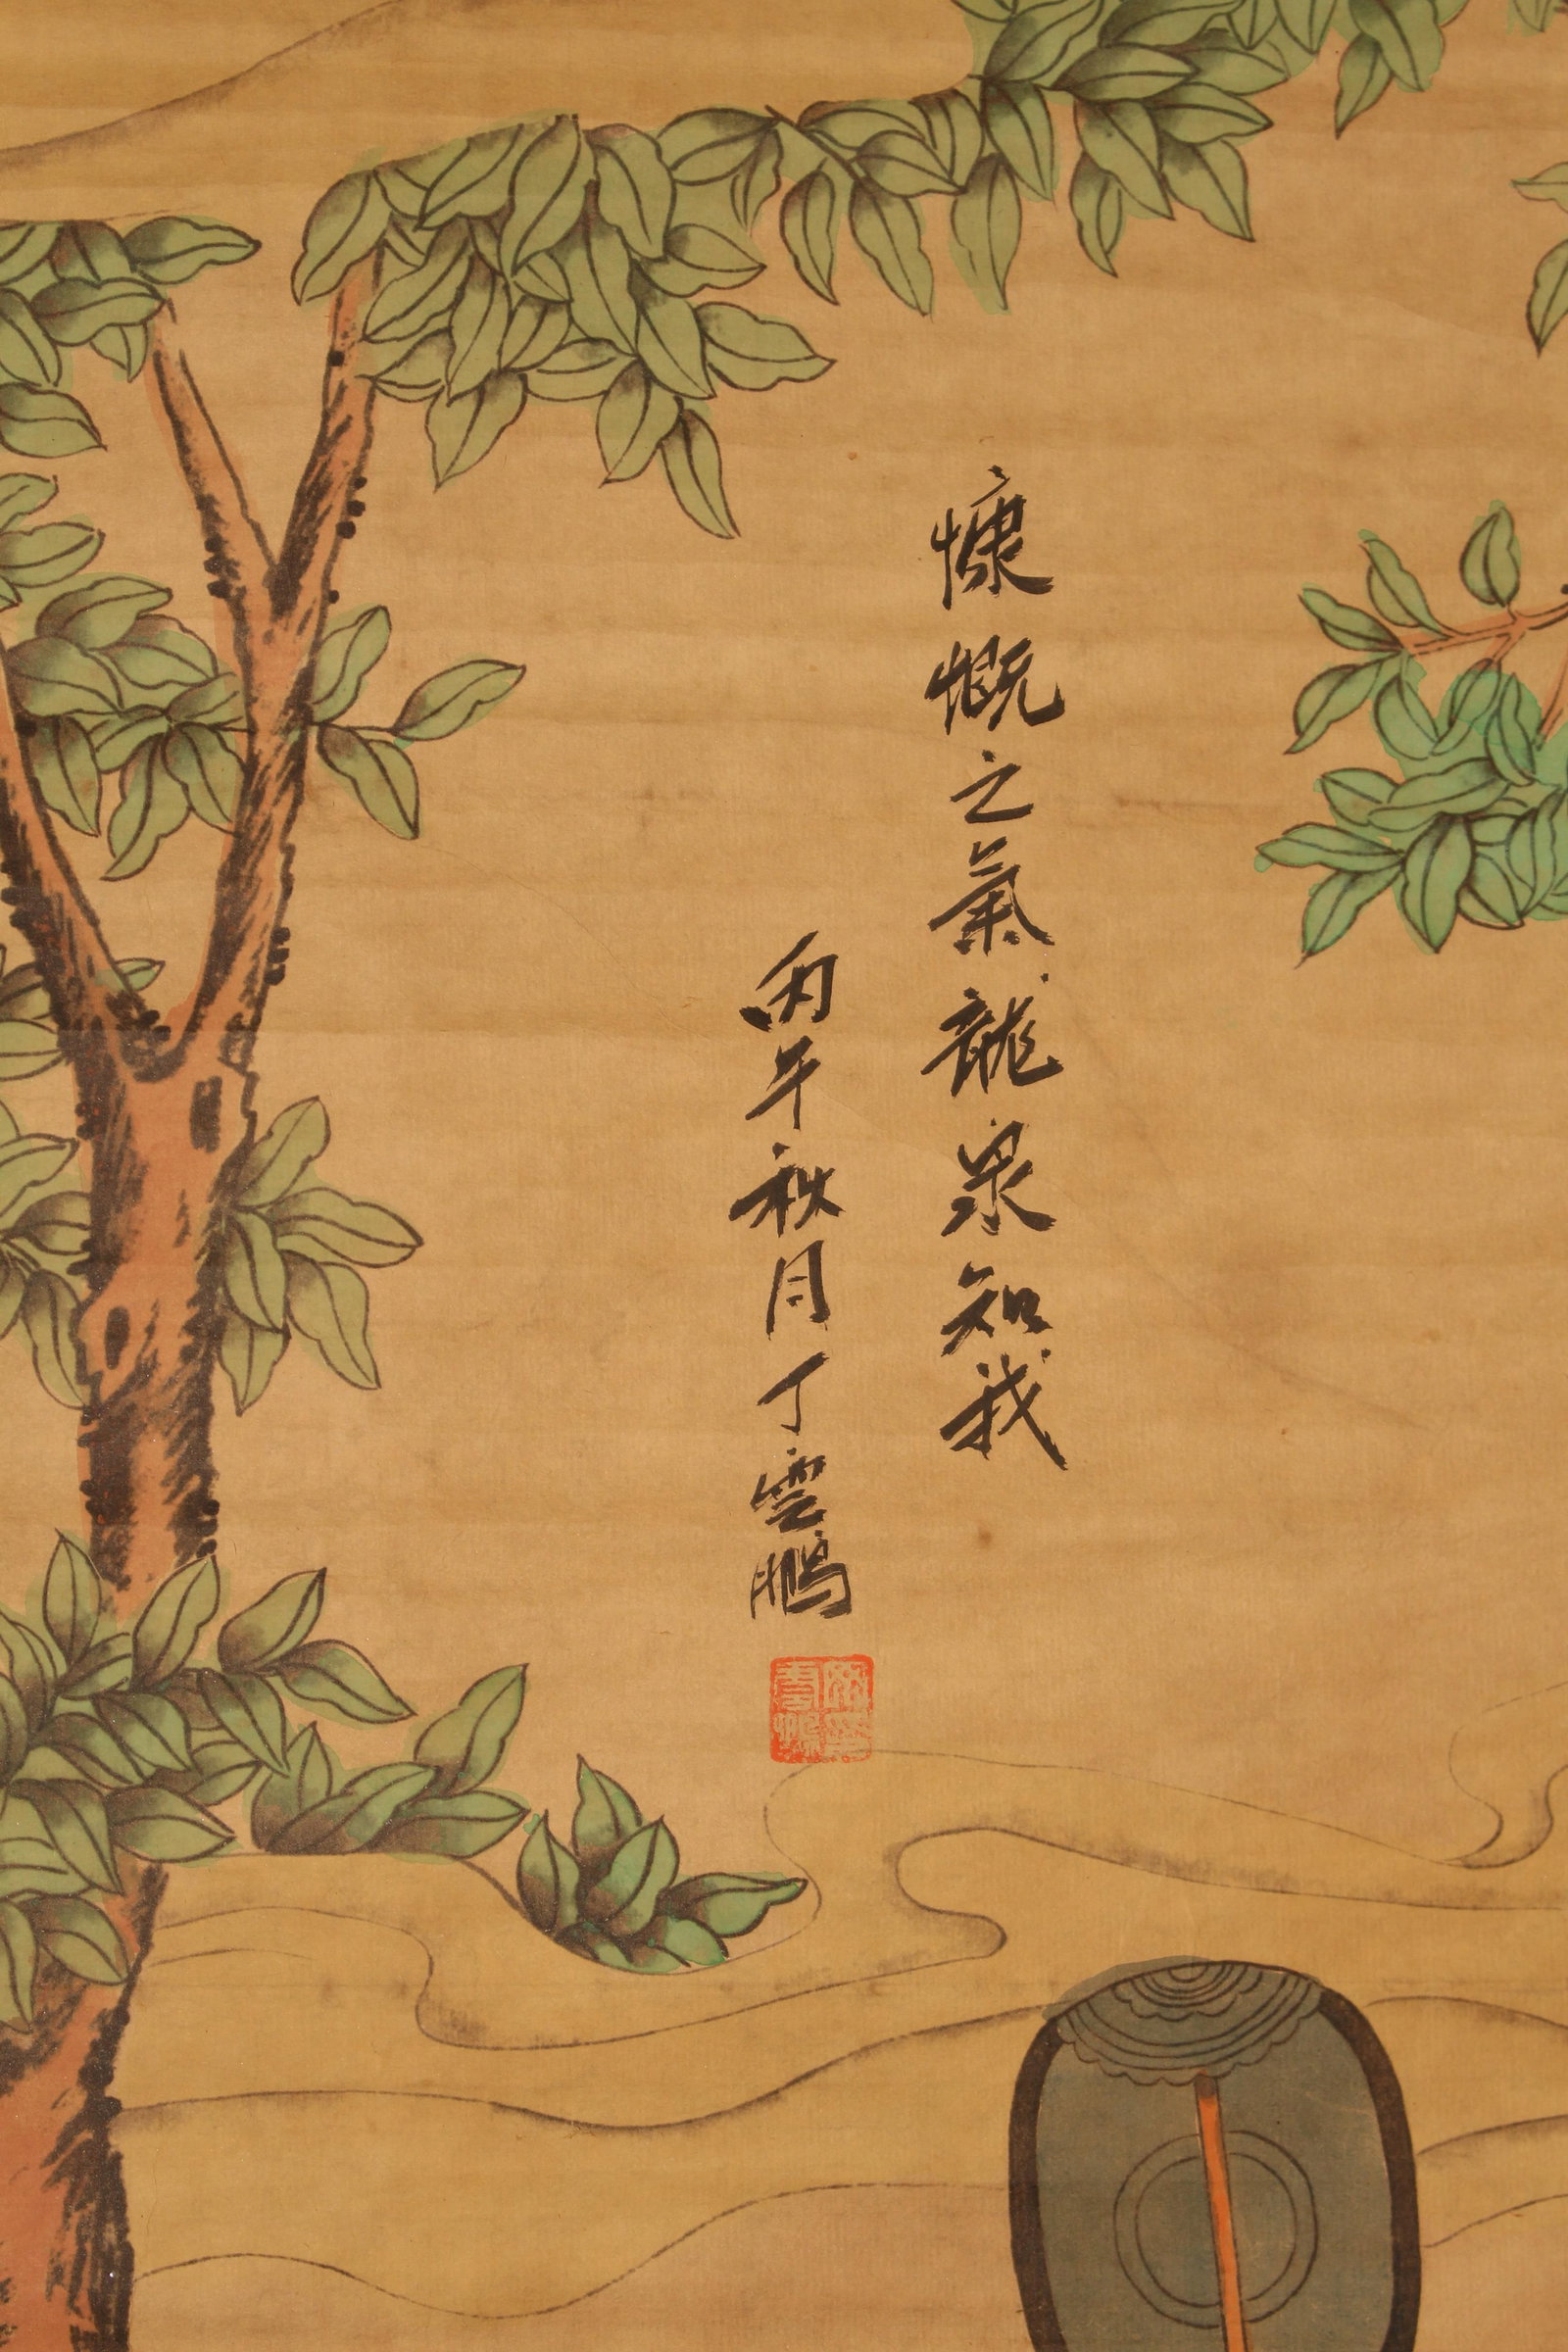 慷慨之氣龍泉知我
丙午秋月丁雲鵬